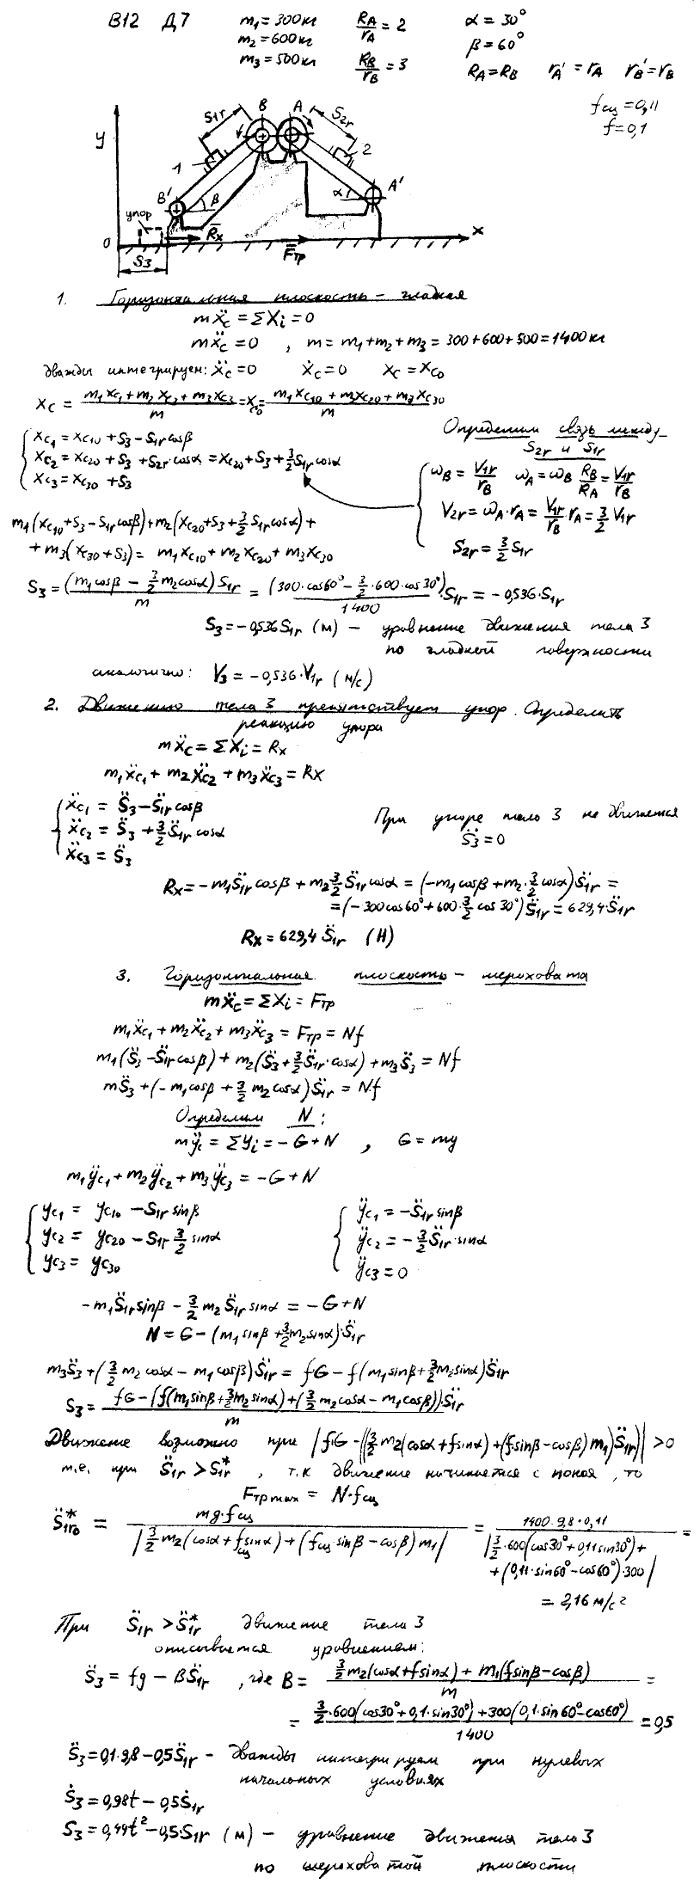 В12 Д7
m₁ = 300кг
m₂ = 600кг
m₃ = 500кг
R_A/r_A = 2
R_B/r_B = 3
α = 30°
β = 60°
R_A = R_B r_A' = r_A r_B' = r_B
f_сц = 0,11
f = 0,1
y
S₁r
B
A
S₂r
1
2
B'
β
α
A'
упор
R̄x
F̄тр
x
0
S₃
1. Горизонтальная плоскость - гладкая
mẍc = ΣXi = 0
mẍc = 0 , m = m₁ + m₂ + m₃ = 300 + 600 + 500 = 1400 кг
дважды интегрируем: ẍc = 0 ẋc = 0 xc = xc0
Xc = (m₁xc₁ + m₂xc₂ + m₃xc₃)/m = xc0 = (m₁xc10 + m₂xc20 + m₃xc30)/m
xc₁ = xc10 + S₃ - S₁r cosβ
xc₂ = xc20 + S₃ + S₂r·cosα = xc20 + S₃ + 3/2 S₁r cosα
xc₃ = xc30 + S₃
Определим связь между
S₂r и S₁r
ω_B = V₁r/r_B ω_A = ω_B R_B/R_A = V₁r/r_B
V₂r = ω_A·r_A = V₁r/r_B r_A = 3/2 V₁r
S₂r = 3/2 S₁r
m₁(xc10 + S₃ - S₁r cosβ) + m₂(xc20 + S₃ + 3/2 S₁r cosα) +
+ m₃(xc30 + S₃) = m₁xc10 + m₂xc20 + m₃xc30
S₃ = (m₁cosβ - 3/2 m₂cosα)S₁r/m = (300·cos60° - 3/2·600·cos30°)/1400 S₁r = -0,536·S₁r
S₃ = -0,536S₁r (м) - уравнение движения тела 3
по гладкой поверхности
аналогично: V₃ = -0,536·V₁r (м/с)
2. Движению тела 3 препятствует упор. Определить
реакцию упора
mẍc = ΣXi = Rx
m₁ẍc₁ + m₂ẍc₂ + m₃ẍc₃ = Rx
ẍc₁ = S̈₃ - S̈₁r cosβ
ẍc₂ = S̈₃ + 3/2 S̈₁r cosα
ẍc₃ = S̈₃
При упоре тело 3 не движется
S̈₃ = 0
Rx = -m₁S̈₁r cosβ + m₂ 3/2 S̈₁r cosα = (-m₁cosβ + m₂·3/2 cosα)S̈₁r =
= (-300cos60° + 600·3/2 cos30°)S̈₁r = 629,4·S̈₁r
Rx = 629,4 S̈₁r (Н)
3. Горизонтальная плоскость - шероховата
mẍc = ΣXi = Fтр
m₁ẍc₁ + m₂ẍc₂ + m₃ẍc₃ = Fтр = Nf
m₁(S̈₃ - S̈₁r cosβ) + m₂(S̈₃ + 3/2 S̈₁r·cosα) + m₃S̈₃ = Nf
mS̈₃ + (-m₁cosβ + 3/2 m₂cosα)S̈₁r = Nf
Определим N:
mÿc = ΣYi = -G + N , G = mg
m₁ÿc₁ + m₂ÿc₂ + m₃ÿc₃ = -G + N
yc₁ = yc10 - S₁r sinβ
yc₂ = yc20 - S₁r 3/2 sinα
yc₃ = yc30
ÿc₁ = -S̈₁r sinβ
ÿc₂ = -3/2 S̈₁r·sinα
ÿc₃ = 0
-m₁S̈₁r sinβ - 3/2 m₂S̈₁r sinα = -G + N
N = G - (m₁sinβ + 3/2 m₂sinα)·S̈₁r
m₃S̈₃ + (3/2 m₂cosα - m₁cosβ)S̈₁r = f·G - f(m₁sinβ + 3/2 m₂sinα)S̈₁r
S₃ = (fG - (f(m₁sinβ + 3/2 m₂sinα) + (3/2 m₂cosα - m₁cosβ))S̈₁r)/m
Движение возможно при |fG - ((3/2 m₂(cosα + f sinα) + (f sinβ - cosβ)m₁)S̈₁r)| > 0
т.е. при S̈₁r > S̈₁r* , т.к движение начинается с покоя, то
Fтр max = N·fсц
S̈₁r₀* = mg·fсц / |3/2 m₂(cosα + fсц sinα) + (fсц·sinβ - cosβ)m₁| = 1400·9,8·0,11 / |3/2·600(cos30° + 0,11sin30°) +
+ (0,11·sin60° - cos60°)·300| =
= 2,16 м/с²
При S̈₁r > S̈₁r* движение тела 3
описывается уравнением:
S̈₃ = fg - BS̈₁r , где B = (3/2 m₂(cosα + f sinα) + m₁(f sinβ - cosβ))/m =
= (3/2·600(cos30° + 0,1·sin30°) + 300(0,1·sin60° - cos60°))/1400 = 0,5
S̈₃ = 0,1·9,8 - 0,5S̈₁r - дважды интегрируем при нулевых
начальных условиях
Ṡ₃ = 0,98t - 0,5Ṡ₁r
S₃ = 0,49t² - 0,5·S₁r (м) - уравнение движения тела 3
по шероховатой плоскости